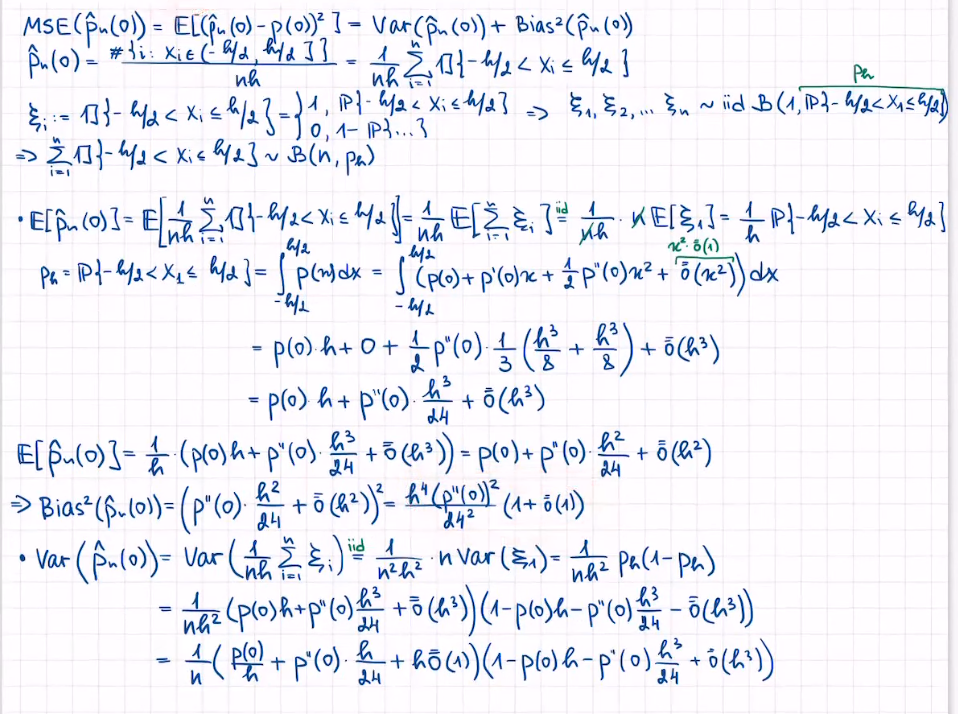 MSE(p̂ₙ(0)) = 𝔼[(p̂ₙ(0) - p(0))²] = Var(p̂ₙ(0)) + Bias²(p̂ₙ(0))
p̂ₙ(0) = #{i: Xᵢ ∈ (-h/2, h/2]}/(nh) = 1/(nh) Σᵢ₌₁ⁿ 𝟙{-h/2 < Xᵢ ≤ h/2}
ξᵢ := 𝟙{-h/2 < Xᵢ ≤ h/2} = {1, ℙ{-h/2 < Xᵢ ≤ h/2}; 0, 1 - ℙ{...}} ⇒ ξ₁, ξ₂, ... ξₙ ~ iid B(1, ℙ{-h/2 < X₁ ≤ h/2}) pₕ
⇒ Σᵢ₌₁ⁿ 𝟙{-h/2 < Xᵢ ≤ h/2} ~ B(n, pₕ)
• 𝔼[p̂ₙ(0)] = 𝔼[1/(nh) Σᵢ₌₁ⁿ 𝟙{-h/2 < Xᵢ ≤ h/2}] = 1/(nh) 𝔼[Σᵢ₌₁ⁿ ξᵢ] =(iid) 1/(nh) · n 𝔼[ξ₁] = 1/h ℙ{-h/2 < Xᵢ ≤ h/2}
x²·ō(1)
pₕ = ℙ{-h/2 < X₁ ≤ h/2} = ∫_{-h/2}^{h/2} p(x)dx = ∫_{-h/2}^{h/2} (p(0) + p'(0)x + 1/2 p''(0)x² + ō(x²))dx
= p(0)·h + 0 + 1/2 p''(0)·1/3 (h³/8 + h³/8) + ō(h³)
= p(0)·h + p''(0)·h³/24 + ō(h³)
𝔼[p̂ₙ(0)] = 1/h·(p(0)h + p''(0)·h³/24 + ō(h³)) = p(0) + p''(0)·h²/24 + ō(h²)
⇒ Bias²(p̂ₙ(0)) = (p''(0)·h²/24 + ō(h²))² = h⁴(p''(0))²/24² (1 + ō(1))
• Var(p̂ₙ(0)) = Var(1/(nh) Σᵢ₌₁ⁿ ξᵢ) =(iid) 1/(n²h²) · n Var(ξ₁) = 1/(nh²) pₕ(1 - pₕ)
= 1/(nh²) (p(0)h + p''(0)h³/24 + ō(h³))(1 - p(0)h - p''(0)h³/24 - ō(h³))
= 1/n (p(0)/h + p''(0)·h/24 + hō(1))(1 - p(0)h - p''(0)h³/24 + ō(h³))